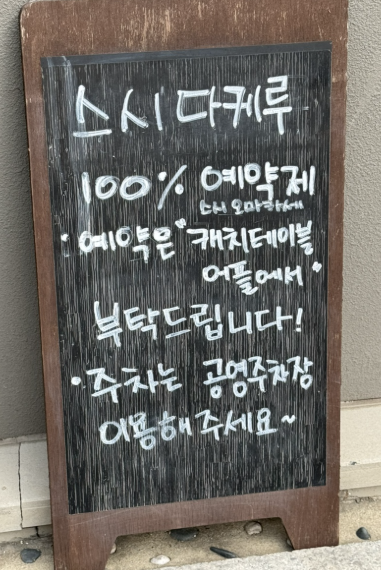 스시 다케루
100% 예약제
스시 오마카세
· 예약은 "캐치테이블
어플에서"
부탁드립니다!
· 주차는 공영주차장
이용해 주세요~